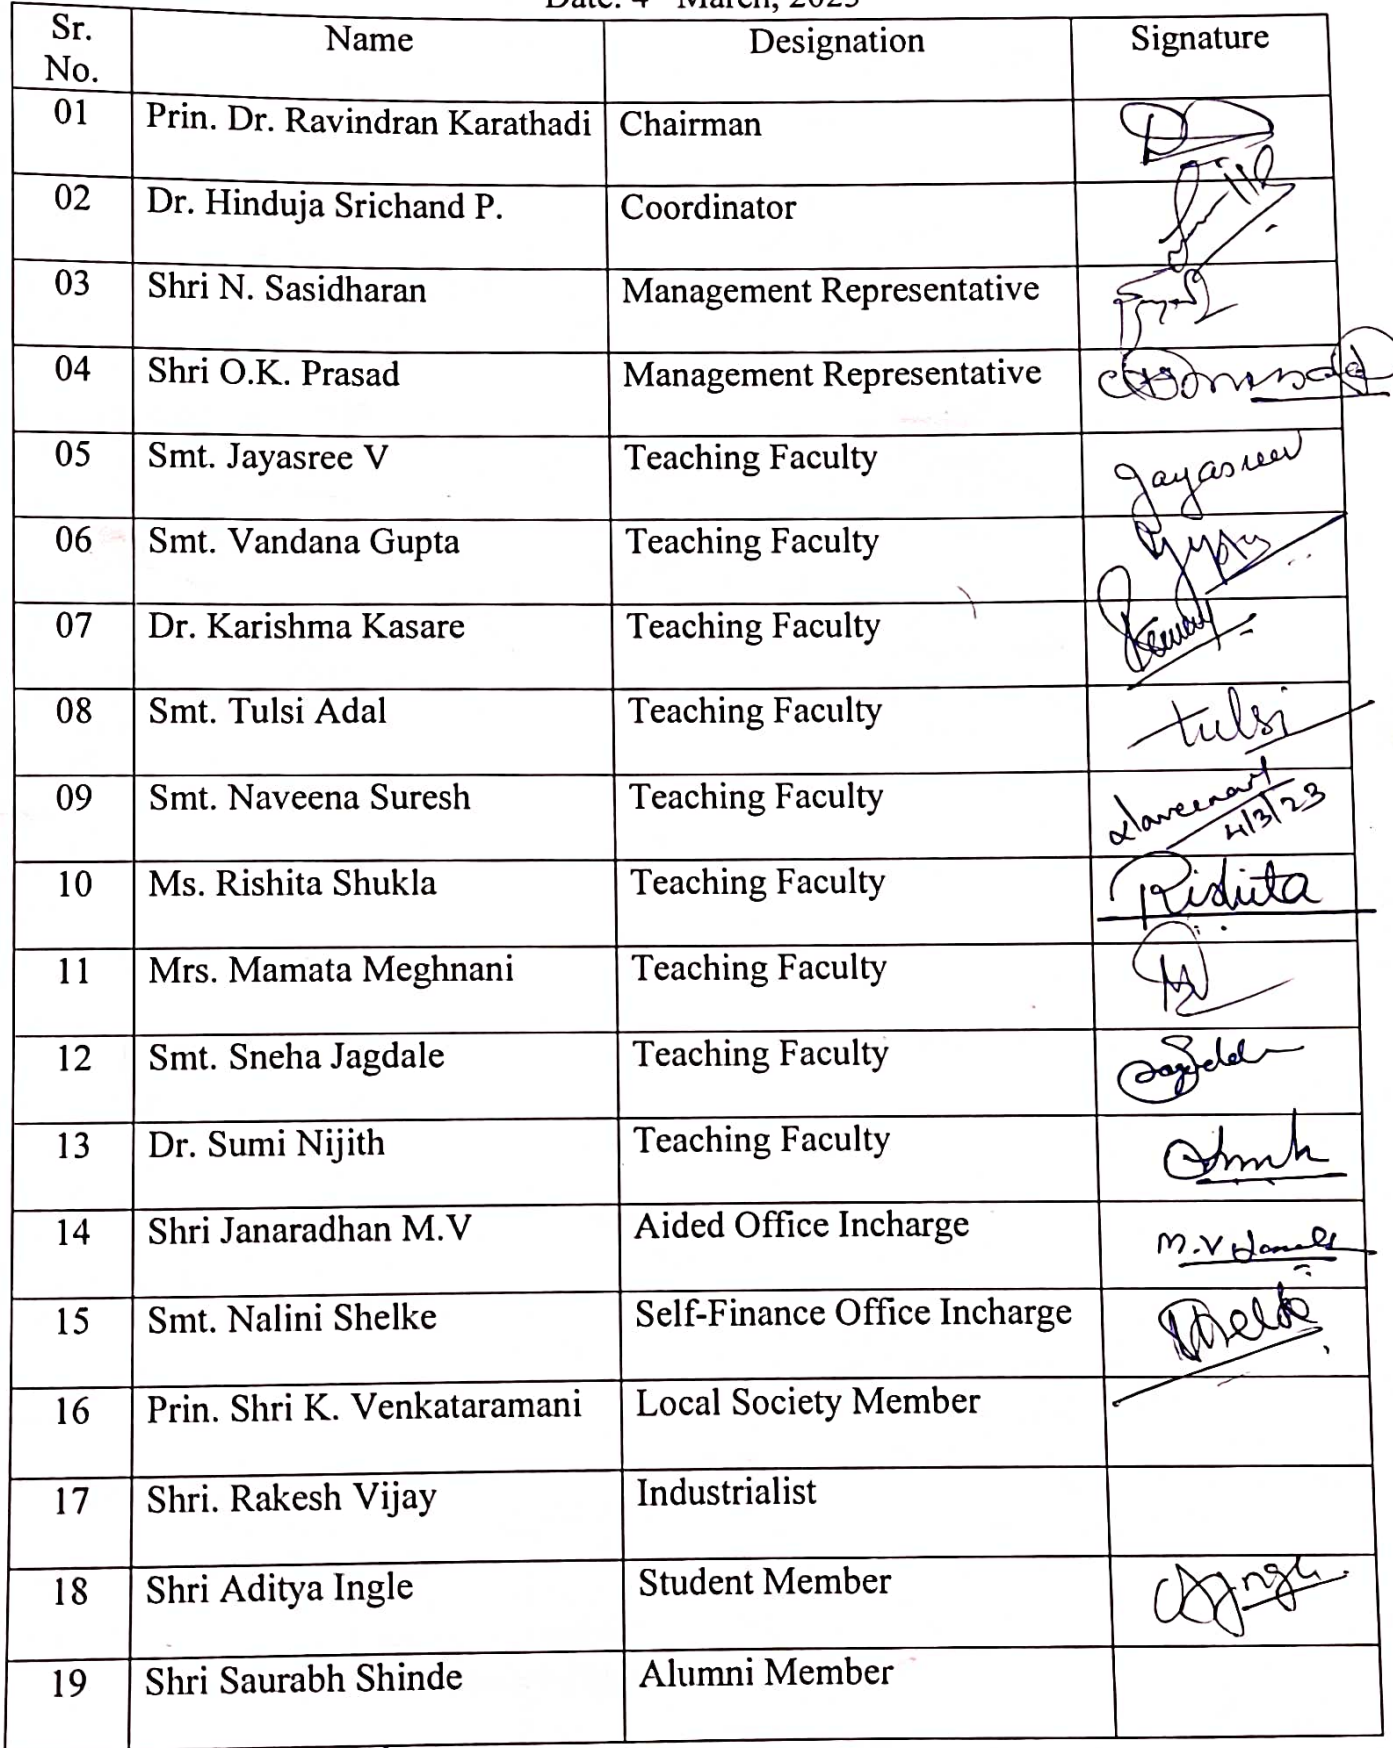 Date: 4 March, 2023
Sr. No. Name Designation Signature
01 Prin. Dr. Ravindran Karathadi Chairman
02 Dr. Hinduja Srichand P. Coordinator
03 Shri N. Sasidharan Management Representative
04 Shri O.K. Prasad Management Representative
05 Smt. Jayasree V Teaching Faculty Jayasreev
06 Smt. Vandana Gupta Teaching Faculty
07 Dr. Karishma Kasare Teaching Faculty
08 Smt. Tulsi Adal Teaching Faculty tulsi
09 Smt. Naveena Suresh Teaching Faculty 4/3/23
10 Ms. Rishita Shukla Teaching Faculty Rishita
11 Mrs. Mamata Meghnani Teaching Faculty
12 Smt. Sneha Jagdale Teaching Faculty
13 Dr. Sumi Nijith Teaching Faculty
14 Shri Janaradhan M.V Aided Office Incharge M.V
15 Smt. Nalini Shelke Self-Finance Office Incharge
16 Prin. Shri K. Venkataramani Local Society Member
17 Shri. Rakesh Vijay Industrialist
18 Shri Aditya Ingle Student Member
19 Shri Saurabh Shinde Alumni Member